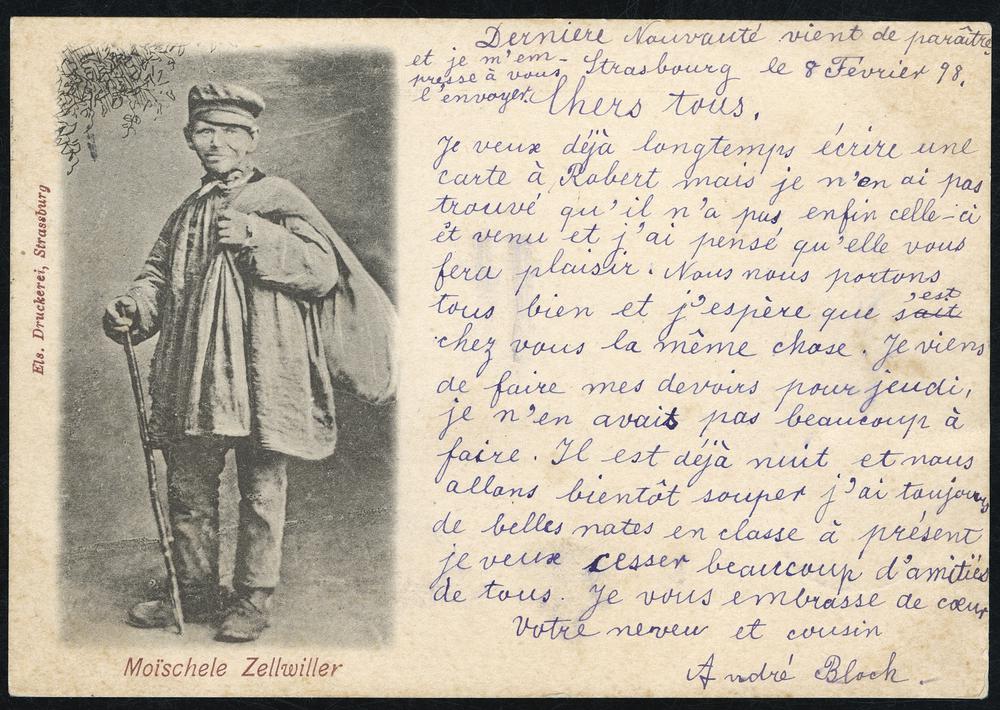 Derniere Nouvauté vient de paraître
et je m'em-
presse à vous
l'envoyer.
Strasbourg le 8 Fevrier 98.
Chers tous.
Je veux déjà longtemps écrire une
carte à Robert mais je n'en ai pas
trouvé qu'il n'a pas enfin celle-ci
êt venu et j'ai pensé qu'elle vous
fera plaisir. Nous nous portons
tous bien et j'espère que s'est sait
chez vous la même chose. Je viens
de faire mes devoirs pour jeudi,
je n'en avais pas beaucoup à
faire. Il est déjà nuit et nous
allons bientôt souper j'ai toujours
de belles notes en classe à présent
je veux cesser beaucoup d'amitiés
de tous. Je vous embrasse de cœur
Votre neveu et cousin
André Bloch.
Els. Druckerei, Strassburg
Moïschele Zellwiller